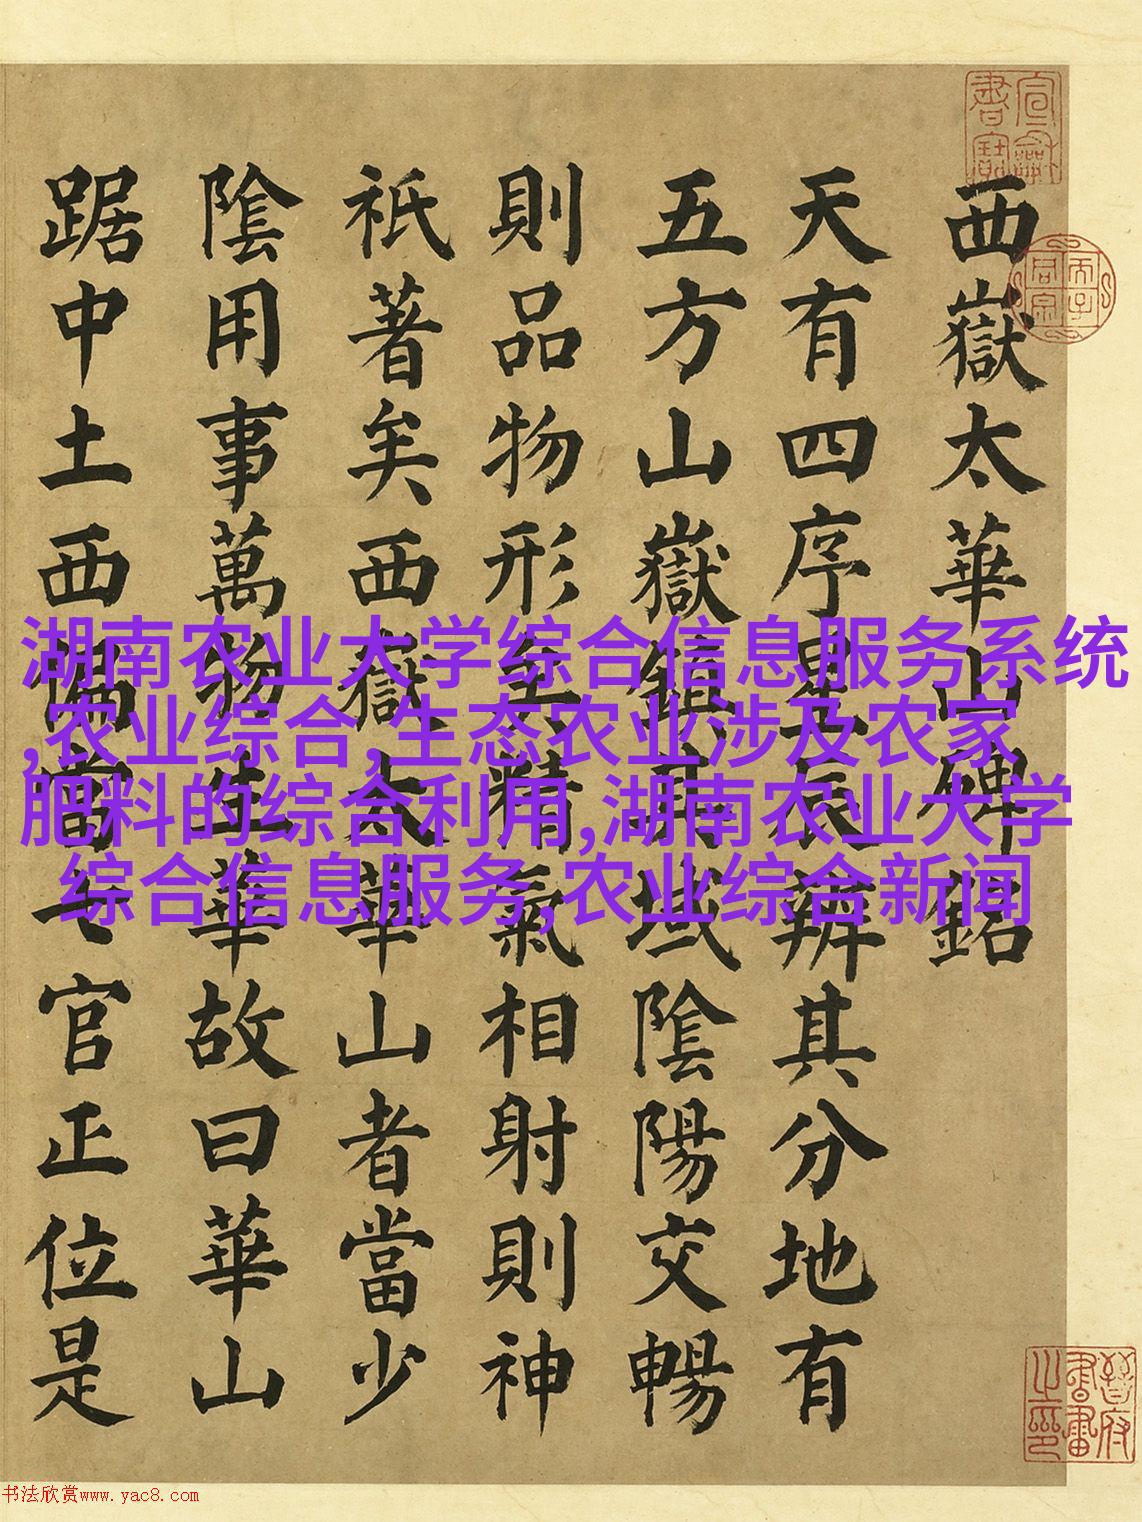 西嶽太華山碑銘
天有四序星辰辨其分地有
五方山嶽鎮其域陰陽交暢
則品物形焉精氣相射則神
祇著矣西嶽太華山者當少
陰用事萬物生華故曰華山
踞中土西偏官正位是
湖南农业大学综合信息服务系统
,农业综合,生态农业涉及农家
肥料的综合利用,湖南农业大学
综合信息服务,农业综合新闻
晉府書畫之印
书法欣赏www.yac8.com